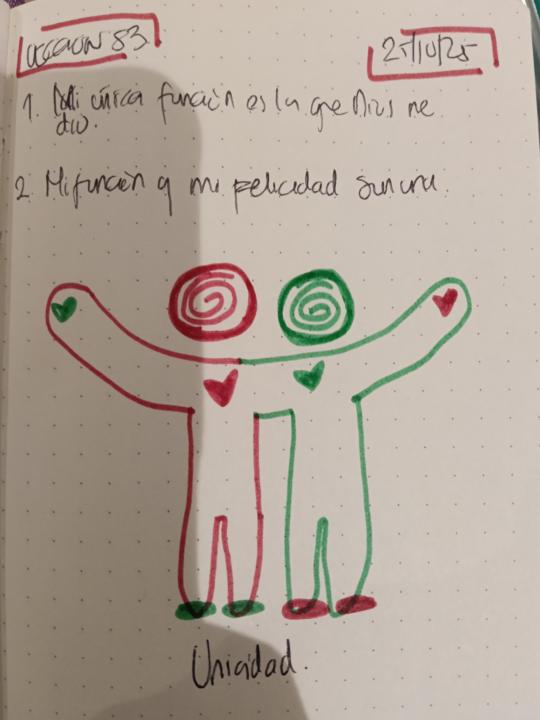 Leccion 83
25/10/25
1. Mi única función es la que Dios me
dio.
2 Mi función y mi felicidad son una.
Unicidad.